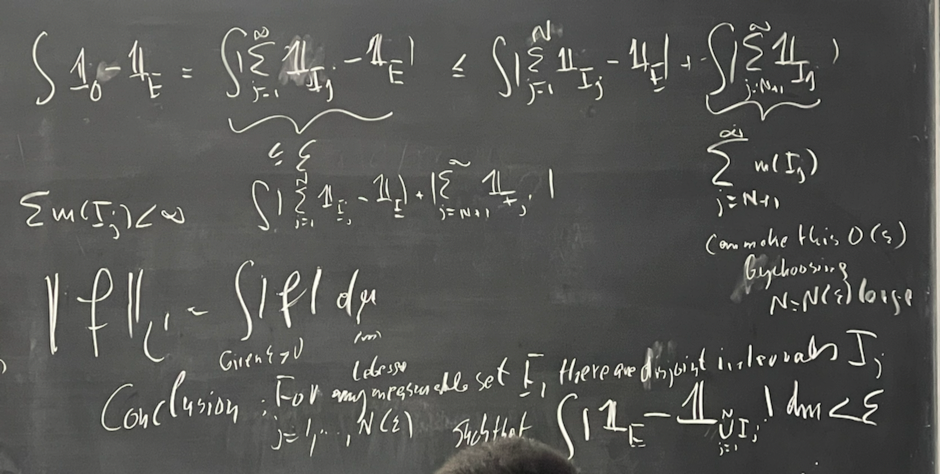 ∫ 𝟙_O - 𝟙_E = ∫|∑_{j=1}^∞ 𝟙_{I_j} - 𝟙_E| ≤ ∫|∑_{j=1}^N 𝟙_{I_j} - 𝟙_E| + ∫|∑_{j=N+1}^∞ 𝟙_{I_j}|
≤ ε
∑_{j=N+1}^∞ m(I_j)
∑m(I_j)<∞
∫|∑_{j=1}^N 𝟙_{I_j} - 𝟙_E| + |∑_{j=N+1}^∞ 𝟙_{I_j}|
Can make this O(ε)
by choosing
N=N(ε) large
||f||_{L^1} = ∫|f| dμ
(m)
Given ε>0
Conclusion: For any measurable set E, there are disjoint intervals I_j
j=1,...,N(ε) such that ∫|𝟙_E - 𝟙_{⋃_{j=1}^N I_j}| dm < ε